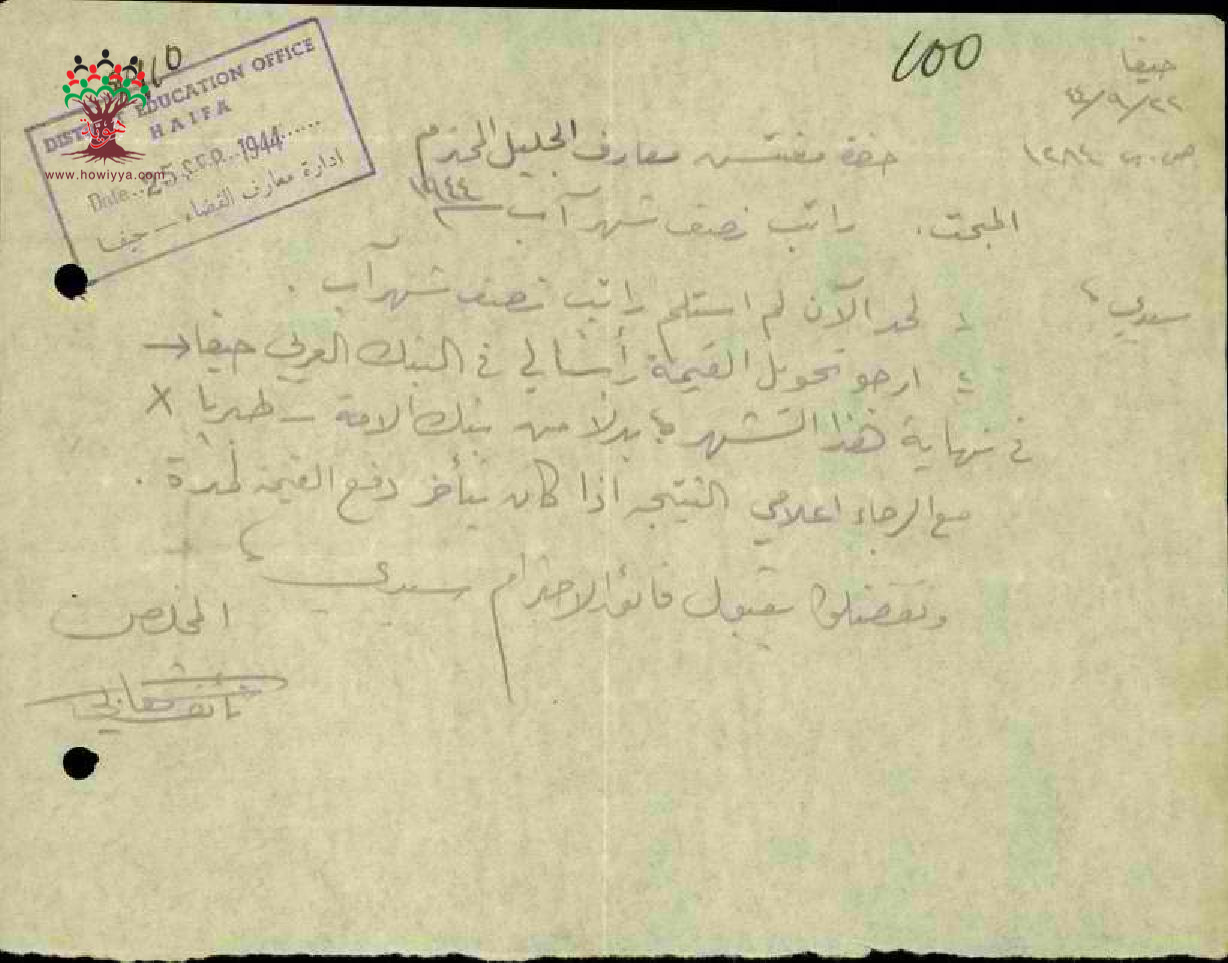 100
حيفا
٤٤/٩/٢٢
ص.ب. ١٢٨٤
DISTRICT EDUCATION OFFICE
HAIFA
Date 25 SEP. 1944
ادارة معارف القضاء — حيفا
www.howiyya.com
حضرة مفتش معارف الجليل المحترم
المبحث. راتب نصف شهر آب ١٩٤٤
سيدي ،
لحد الآن لم استلم راتب نصف شهر آب .
ارجو تحويل القيمة رأسا لي في البنك العربي حيفا
في نهاية هذا الشهر بدلا من بنك الامة – طبريا X
مع الرجاء اعلامي النتيجه اذا كان يتأخر دفع القيمة لمدة .
وتفضلوا بقبول فائق الاحترام سيدي ،
المخلص